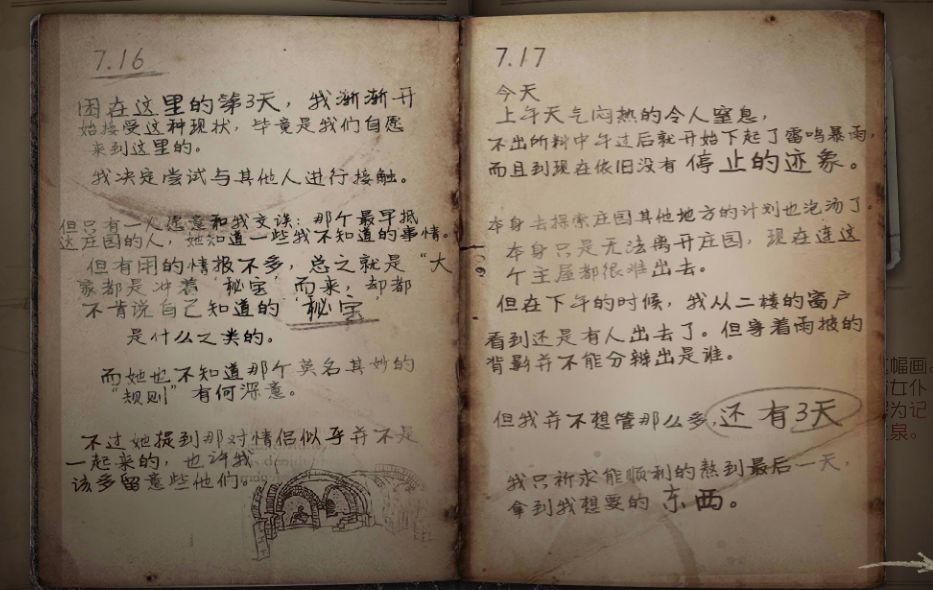 7.16
困在这里的第3天，我渐渐开
始接受这种现状，毕竟是我们自愿
来到这里的。
我决定尝试与其他人进行接触。
但只有一人愿意和我交谈：那个最早抵
达庄园的人，她知道一些我不知道的事情。
但有用的情报不多，总之就是“大
家都是冲着‘秘宝’而来，却都
不肯说自己知道的‘秘宝’
是什么之类的。
而她也不知道那个莫名其妙的
“规则”有何深意。
不过她提到那对情侣似乎并不是
一起来的，也许我
该多留意些他们。
7.17
今天
上午天气闷热的令人窒息，
不出所料中午过后就开始下起了雷鸣暴雨，
而且到现在依旧没有停止的迹象。
本身去探索庄园其他地方的计划也泡汤了。
本身只是无法离开庄园，现在连这
个主屋都很难出去。
但在下午的时候，我从二楼的窗户
看到还是有人出去了。但穿着雨披的
背影并不能分辨出是谁。
但我并不想管那么多，还有3天
我只祈求能顺利的熬到最后一天，
拿到我想要的东西。
幅画
女仆
为记
泉。